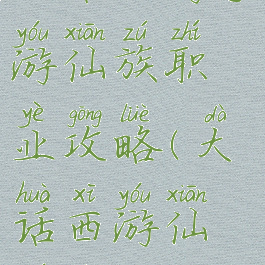 yóu xiān zú zhí
游仙族职
yè gōng lüè dà
业攻略(大
huà xī yóu xiān
话西游仙